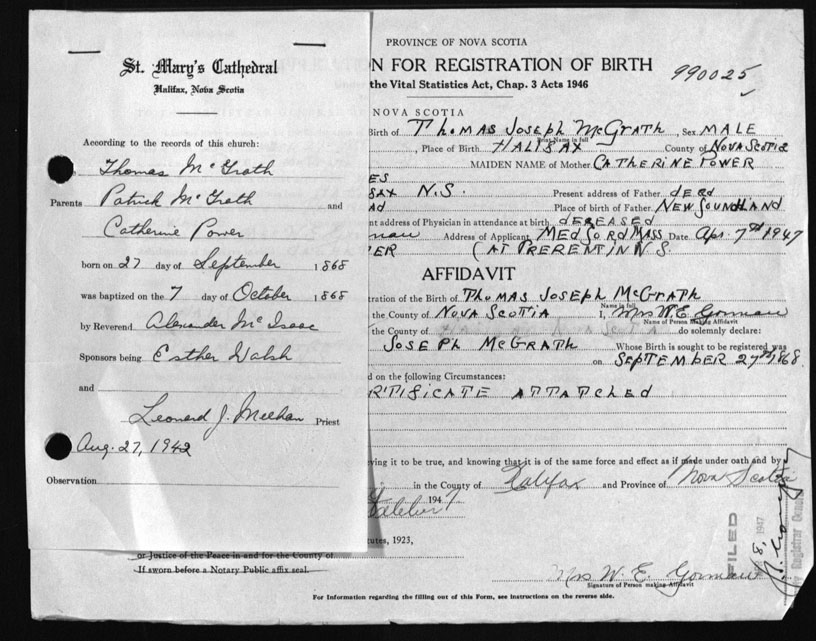 St. Mary's Cathedral
Halifax, Nova Scotia
According to the records of this church:
Thomas McGrath
Parents Patrick McGrath and
Catherine Power
born on 27 day of September 1868
was baptized on the 7 day of October 1868
by Reverend Alexander McIsaac
Sponsors being Esther Walsh
and
Leonard J. Meehan Priest
Aug. 27, 1942
Observation
PROVINCE OF NOVA SCOTIA
N FOR REGISTRATION OF BIRTH
990025
the Vital Statistics Act, Chap. 3 Acts 1946
NOVA SCOTIA
Birth of THOMAS JOSEPH McGRATH, Sex MALE
Print Name in full
, Place of Birth HALIFAX County of NOVA SCOTIA
MAIDEN NAME of Mother CATHERINE POWER
ES
FAX N.S. Present address of Father DEAD
AD Place of birth of Father NEWFOUNDLAND
nt address of Physician in attendance at birth DECEASED
Address of Applicant MEDFORD MASS Date Apr. 7TH 1947
(AT PRERENT IN N.S.
AFFIDAVIT
tration of the Birth of THOMAS JOSEPH McGRATH
Name in full
the County of NOVA SCOTIA I, Mrs W.E. Gorman
Name of Person Making Affidavit
the County of HALIFAX NOVA SCOTIA do solemnly declare:
JOSEPH McGRATH Whose Birth is sought to be registered was
on SEPTEMBER 27TH 1868
d on the following Circumstances:
RTIFICATE ATTATCHED
ving it to be true, and knowing that it is of the same force and effect as if made under oath and by
in the County of Halifax and Province of Nova Scotia
1947
utes, 1923,
or Justice of the Peace in and for the County of
If sworn before a Notary Public affix seal.
Mrs W. E. Gorman
Signature of Person making Affidavit
For Information regarding the filling out of this Form, see instructions on the reverse side.
FILED
8, 1947
Registrar General